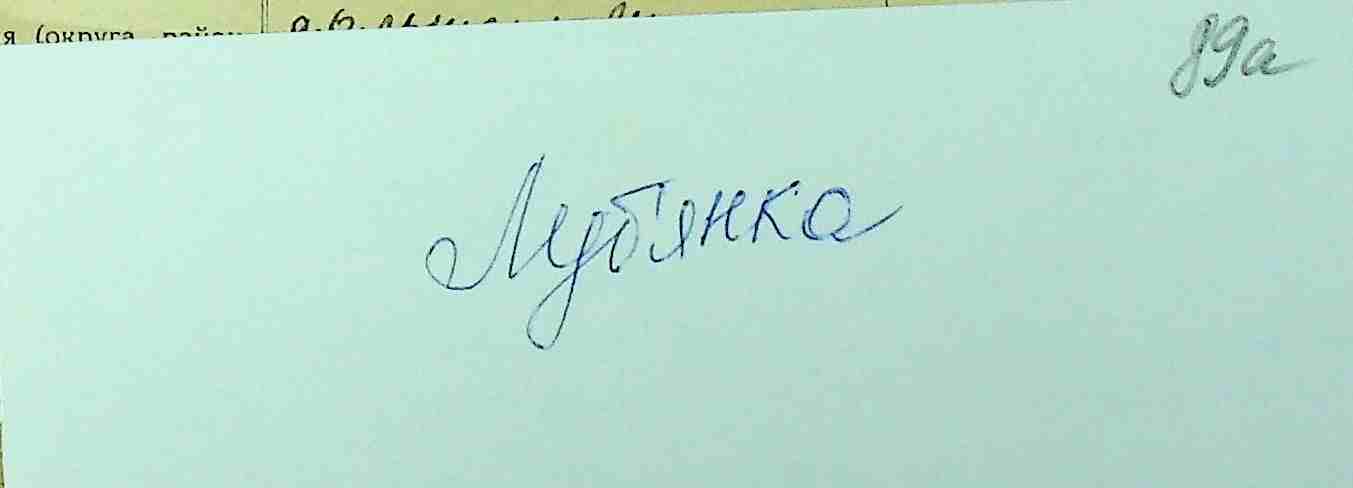 я (округа, район
89а
Лубянка